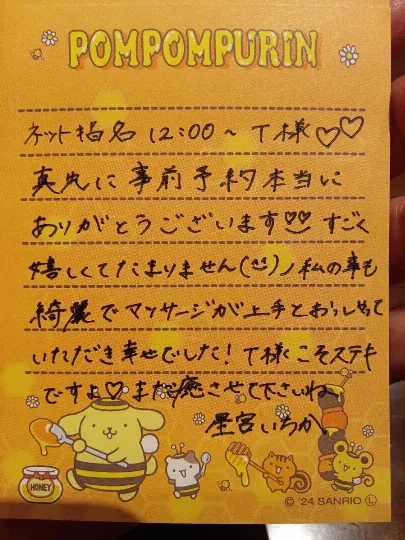 POMPOMPURIN
ネット指名 12:00～ T様♡♡
真先に事前予約本当に
ありがとうございます すごく
嬉しくてたまりません(^^)ノ 私の事も
綺麗でマッサージが上手とおっしゃって
いただき幸せでした! T様こそステキ
ですよ♡ また癒させて下さいね
星宮いちか
HONEY
© '24 SANRIO Ⓛ